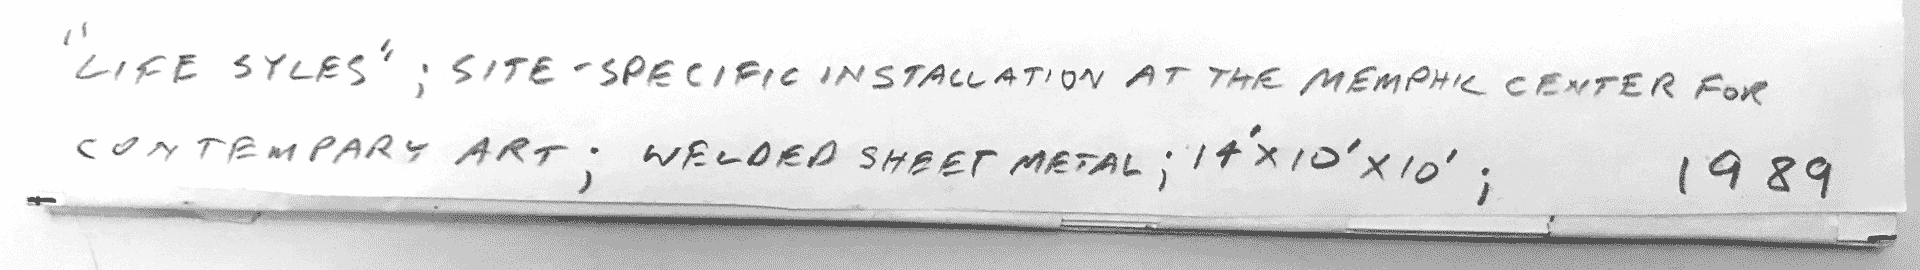 "LIFE SYLES"; SITE-SPECIFIC INSTALLATION AT THE MEMPHIC CENTER FOR
CONTEMPARY ART; WELDED SHEET METAL; 14'X10'X10'; 1989